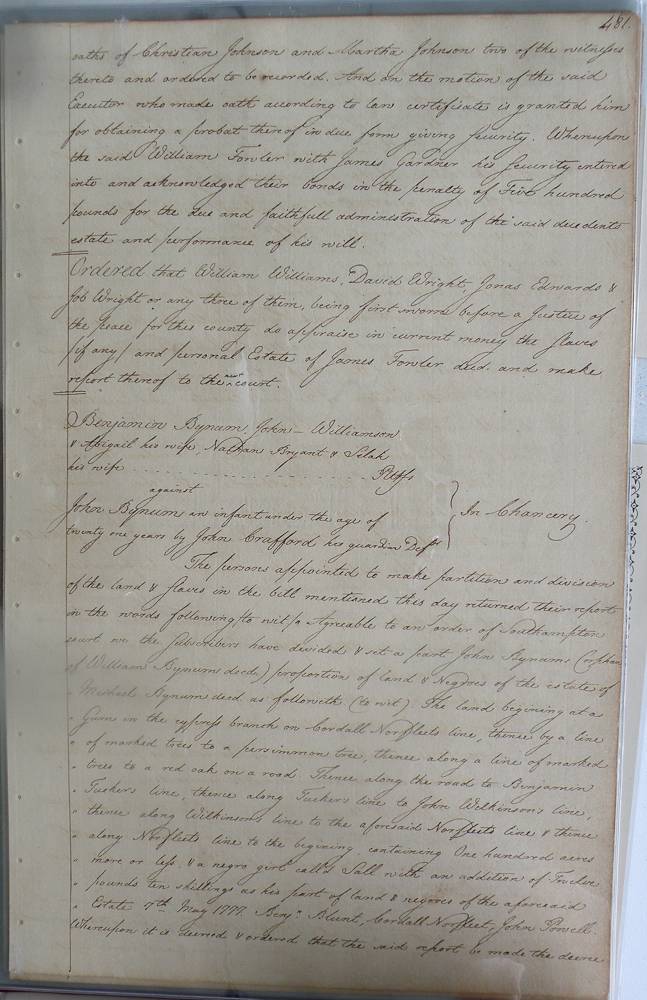 481.
oaths of Christian Johnson and Martha Johnson two of the witnesses
thereto and ordered to be recorded. And on the motion of the said
Executor who made oath according to law certificate is granted him
for obtaining a probat thereof in due form giving security. Whereupon
the said William Fowler with James Gardner his security entered
into and acknowledged their bonds in the penalty of Five hundred
pounds for the due and faithfull administration of the said decedents
estate and performance of his will.
Ordered that William Williams, David Wright, Jonas Edwards &
Job Wright or any three of them, being first sworn before a Justice of
the peace for this county do appraise in current money the slaves
(if any) and personal Estate of James Fowler decd. and make
report thereof to the next court.
Benjamin Bynum, John Williamson
& Abigail his wife, Nathan Bryant & Selah
his wife . . . . . . . . . . . . . . . . . . . . . Pltffs
against
In Chancery.
John Bynum an infant under the age of
twenty one years by John Crafford his guardian Deft
The persons appointed to make partition and division
of the land & slaves in the bill mentioned this day returned their report
in the words following to wit, "Agreable to an order of Southampton
court we the subscribers have divided & set a part John Bynums (orphan
of William Bynums decd.) proportion of land & Negroes of the estate of
" Michael Bynum decd as followeth (to wit) The land begining at a
" Gum in the cypress branch on Cordall Norfleets line, thence by a line
" of marked trees to a persimmon tree, thence along a line of marked
" trees to a red oak on a road Thence along the road to Benjamin
" Tuckers line, thence along Tuckers line to John Wilkinsons line,
" thence along Wilkinsons line to the aforesaid Norfleets line & thence
" along Norfleets line to the begining containing One hundred acres
" more or less, & a negro girl calld Sall with an addition of Twelve
" pounds ten shillings as his part of land & negroes of the aforesaid
" Estate 7th. May 1777. Benjn. Blunt, Cordall Norfleet, John Powell.
Whereupon it is decreed & ordered that the said report be made the decree